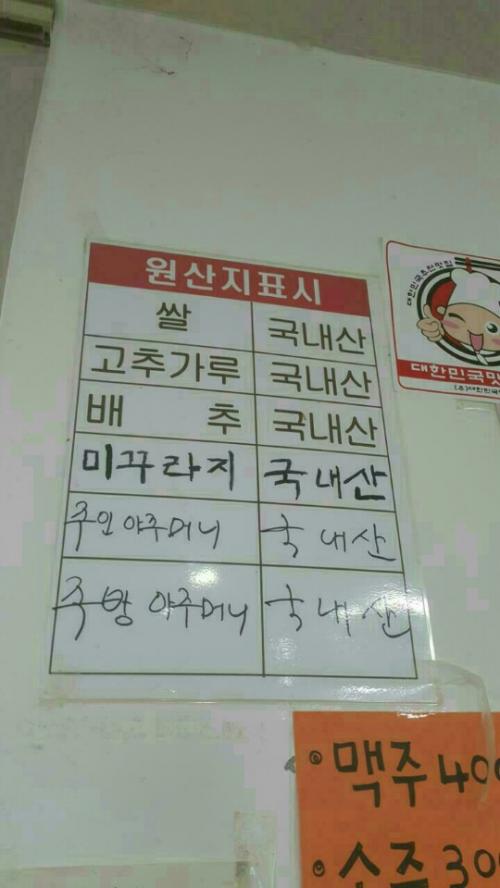 원산지표시
쌀 국내산
고추가루 국내산
배 추 국내산
미꾸라지 국내산
주인 아주머니 국내산
주방 아주머니 국내산
대한민국맛
맥주 400
소주 300